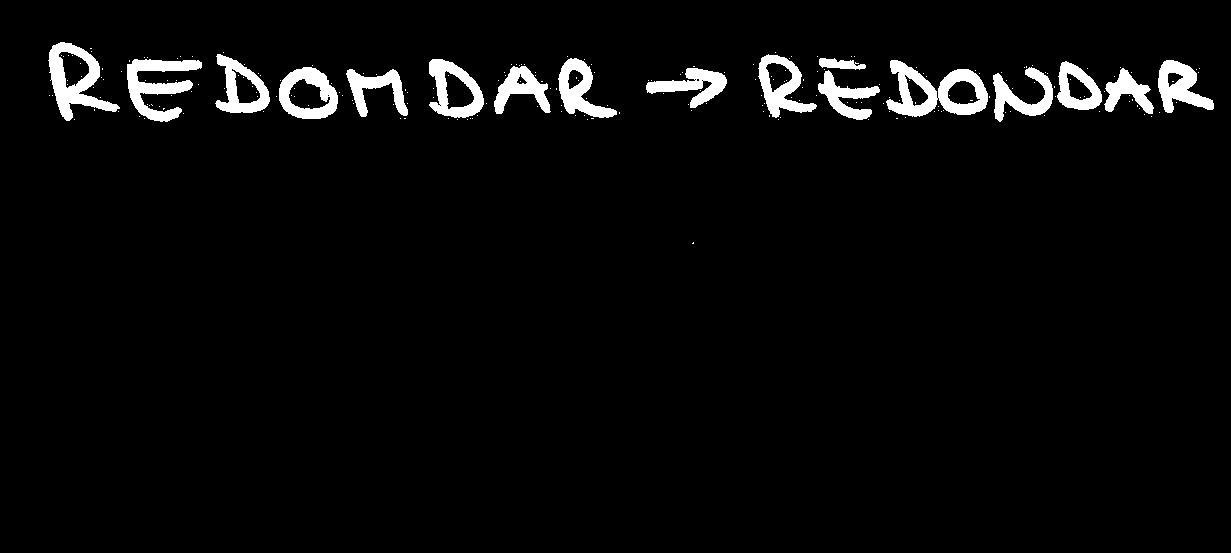 REDOMDAR → REDONDAR